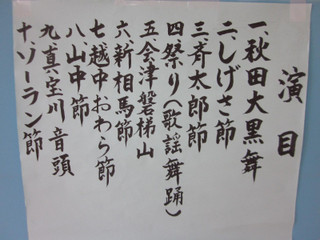 演目
一、秋田大黒舞
二、しげさ節
三、斉太郎節
四、祭り(歌謡舞踊)
五、会津磐梯山
六、新相馬節
七、越中おわら節
八、山中節
九、真室川音頭
十、ソーラン節